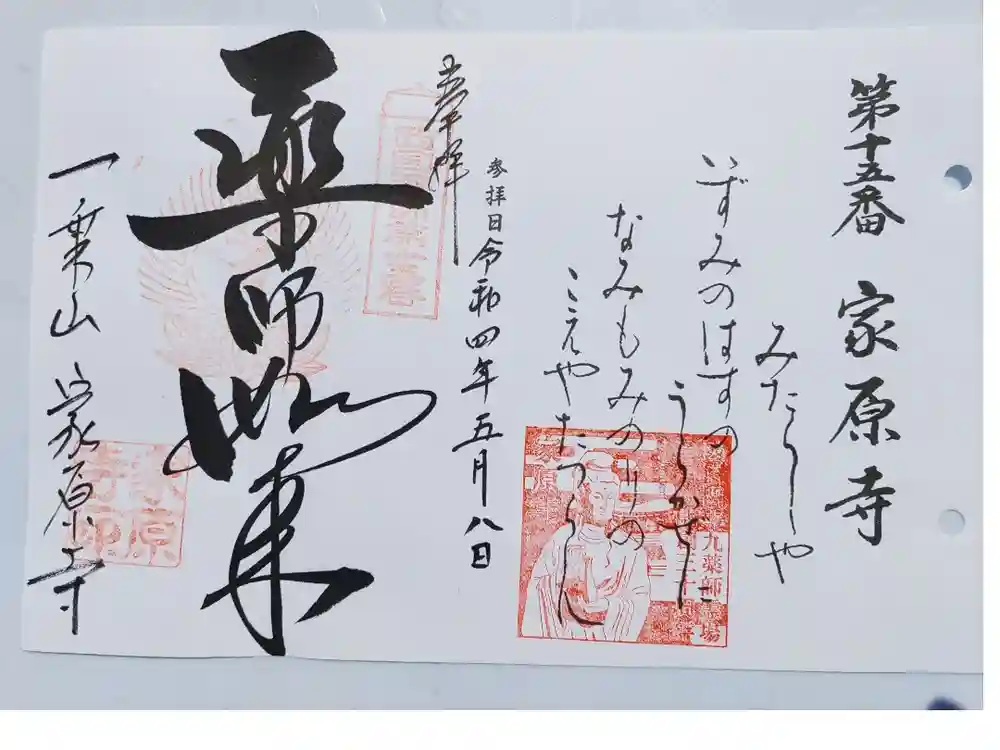 第十五番 家原寺
みたらしや
いずみのはすの
うらかぜに
なみもみのりの
こえやたつらん
参拝日令和四年五月八日
奉拝
薬師如来
一乗山 家原寺
九薬師霊場